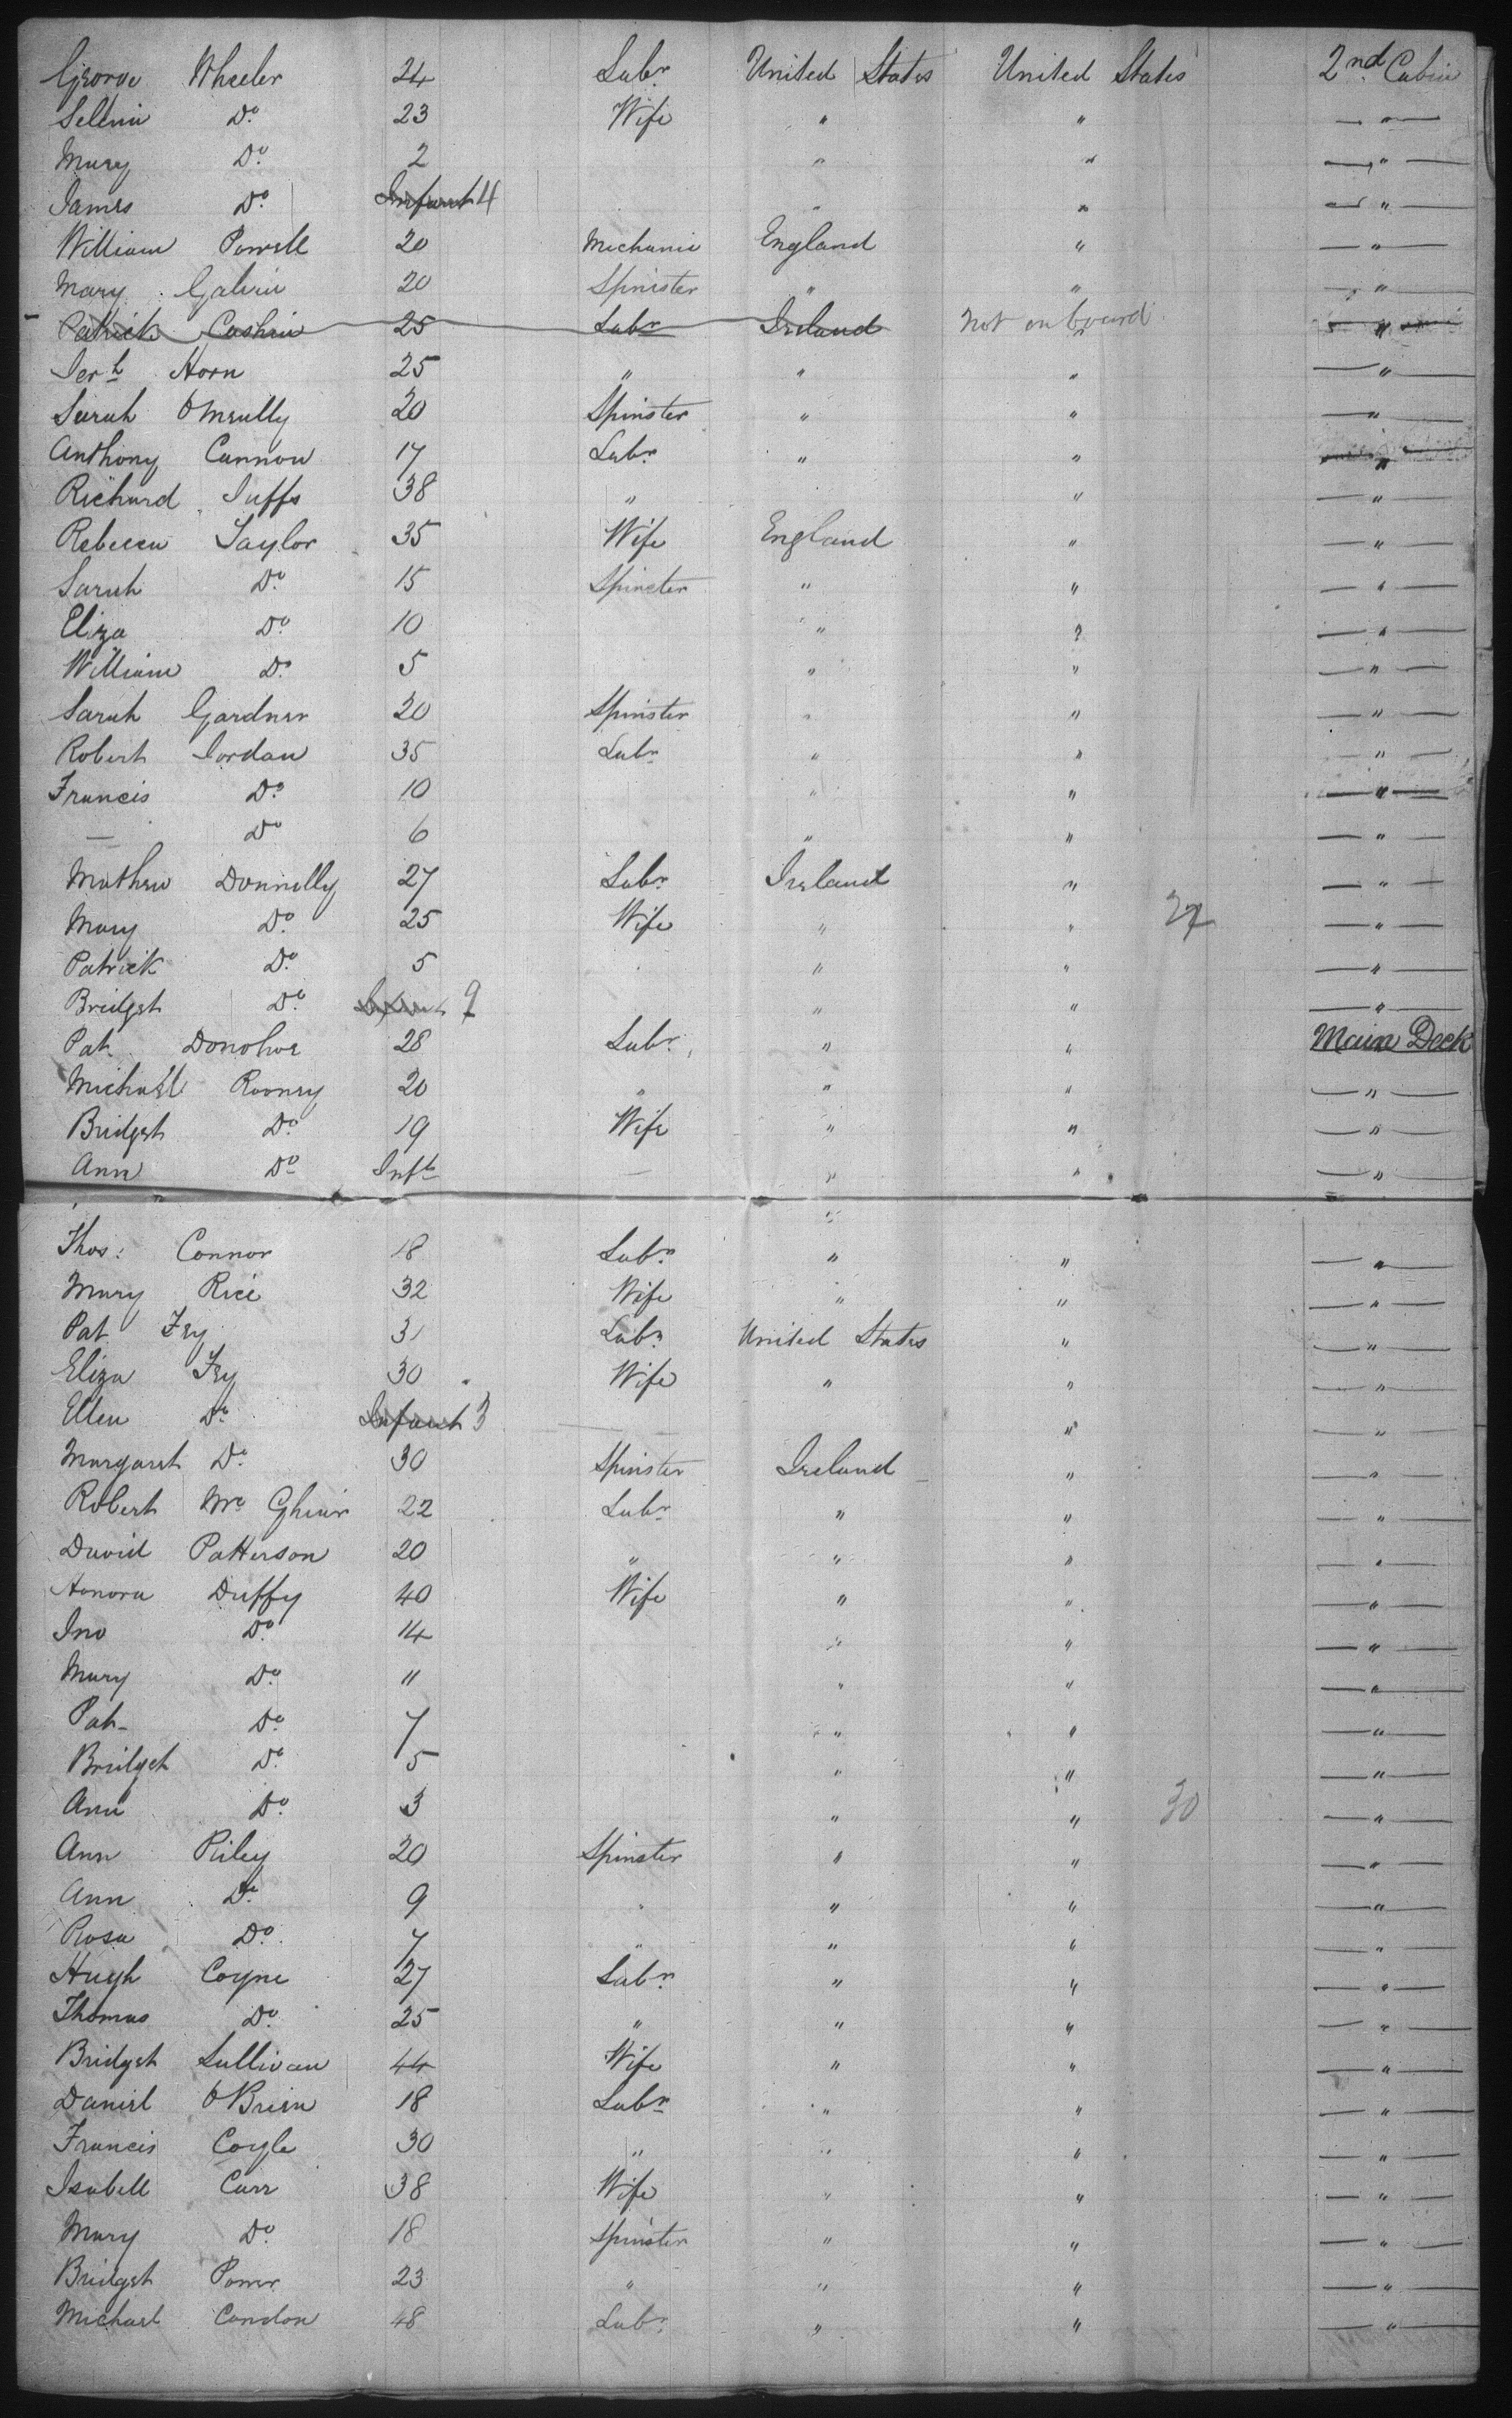 George Wheeler 24 Labr United States United States 2nd Cabin
Selenia Do. 23 Wife " " — " —
Mary Do. 2 " " — " —
James Do. Infant 4 " " — " —
William Powell 20 Mechanic England " — " —
Mary Galvin 20 Spinster " " — " —
Patrick Cashin 25 Labr Ireland Not on board " — " —
Jerh Horn 25 " " " — " —
Sarah 20 Spinster " " — " —
Anthony Cannon 17 Labr " " — " —
Richard 38 " " — " —
Rebecca Taylor 35 Wife England " — " —
Sarah Do. 15 Spinster " " — " —
Eliza Do. 10 " " — " —
William Do. 5 " " — " —
Sarah Gardner 20 Spinster " " — " —
Robert Jordan 35 Labr " " — " —
Francis Do. 10 " " — " —
— Do 6 " " — " —
Mathew Donnelly 27 Labr Ireland " — " —
Mary Do. 25 Wife " " — " —
Patrick Do. 5 " " — " —
Bridget Do. Infant " " — " —
Pat. Donohoe 28 Labr. " " Main Deck
Michael Rooney 20 " " " — " —
Bridget Do. 19 Wife " " — " —
Ann Do Inft — " " — " —
Thos: Connor 18 Labr " " — " —
Mary Rice 32 Wife " " — " —
Pat Fey 31 Labr United States " — " —
Eliza Fey 30 Wife " " — " —
Ellen Do. Infant 3 " — " —
Margaret Do. 30 Spinster Ireland " — " —
Robert Mc 22 Labr " " — " —
David Patterson 20 " " " — " —
Honora Duffy 40 Wife " " — " —
Jno Do. 14 " " — " —
Mary Do. 11 " " — " —
Pat Do. 7 " " — " —
Bridget Do. 5 " " — " —
Ann Do. 3 " " 30 — " —
Ann Riley 20 Spinster " " — " —
Ann Do. 9 " " — " —
Rosa Do. 7 " " — " —
Hugh Coyne 27 Labr " " — " —
Thomas Do. 25 " " " — " —
Bridget Sullivan 44 Wife " " — " —
Daniel O'Brien 18 Labr " " — " —
Francis Coyle 30 " " " — " —
Isabell Carr 38 Wife " " — " —
Mary Do. 18 Spinster " " — " —
Bridget Power 23 " " " — " —
Michael Condon 48 Labr " " — " —